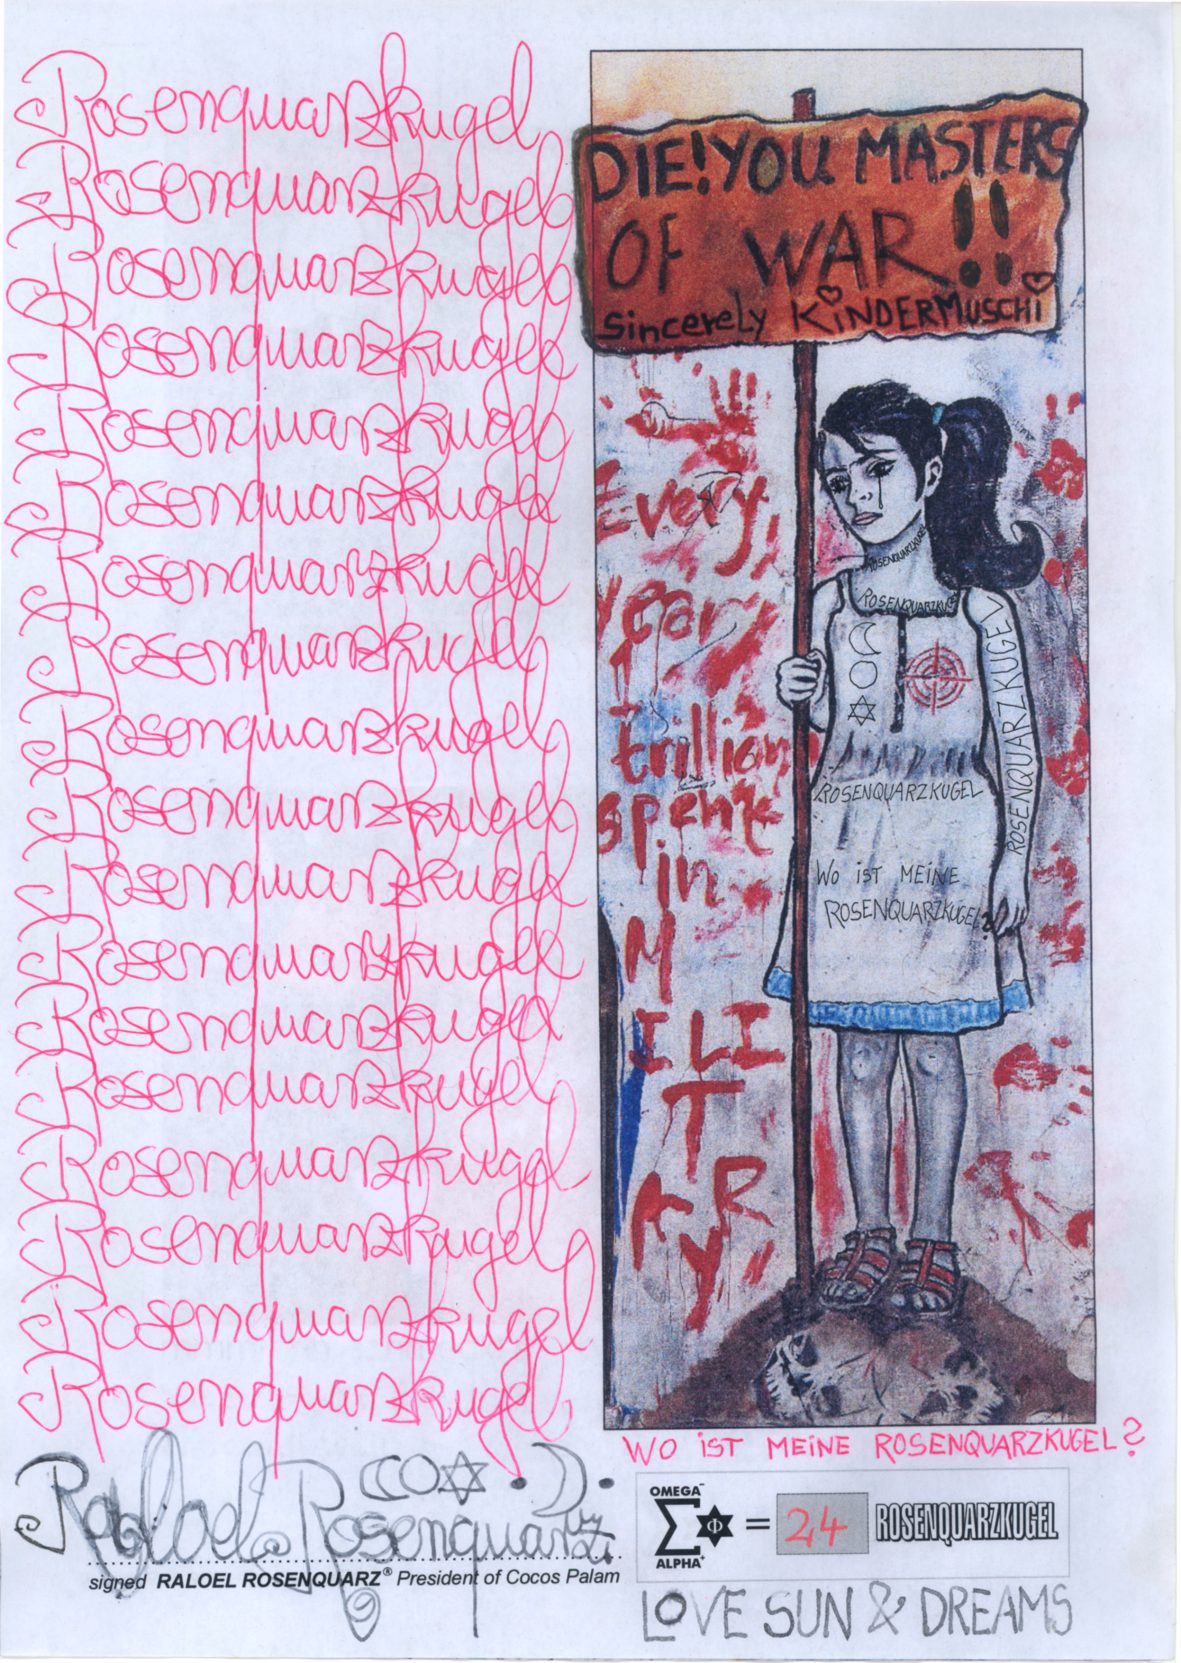 Rosenquarzkugel
Rosenquarzkugel
Rosenquarzkugel
Rosenquarzkugel
Rosenquarzkugel
Rosenquarzkugel
Rosenquarzkugel
Rosenquarzkugel
Rosenquarzkugel
Rosenquarzkugel
Rosenquarzkugel
Rosenquarzkugel
Rosenquarzkugel
Rosenquarzkugel
Rosenquarzkugel
Rosenquarzkugel
Rosenquarzkugel
Rosenquarzkugel
DIE! YOU MASTERS
OF WAR!!
sincerely KINDERMUSCHI
Every
year
1
trillion
spent
in
M
ILI
T
AR
Y
ROSENQUARZKUGEL
ROSENQUARZKUGEL
ROSENQUARZKUGEL
ROSENQUARZKUGEL
WO IST MEINE
ROSENQUARZKUGEL?
WO IST MEINE ROSENQUARZKUGEL?
Raloel Rosenquarz
signed RALOEL ROSENQUARZ® President of Cocos Palam
OMEGA
Σ Φ = 24 ROSENQUARZKUGEL
ALPHA
LOVE SUN & DREAMS